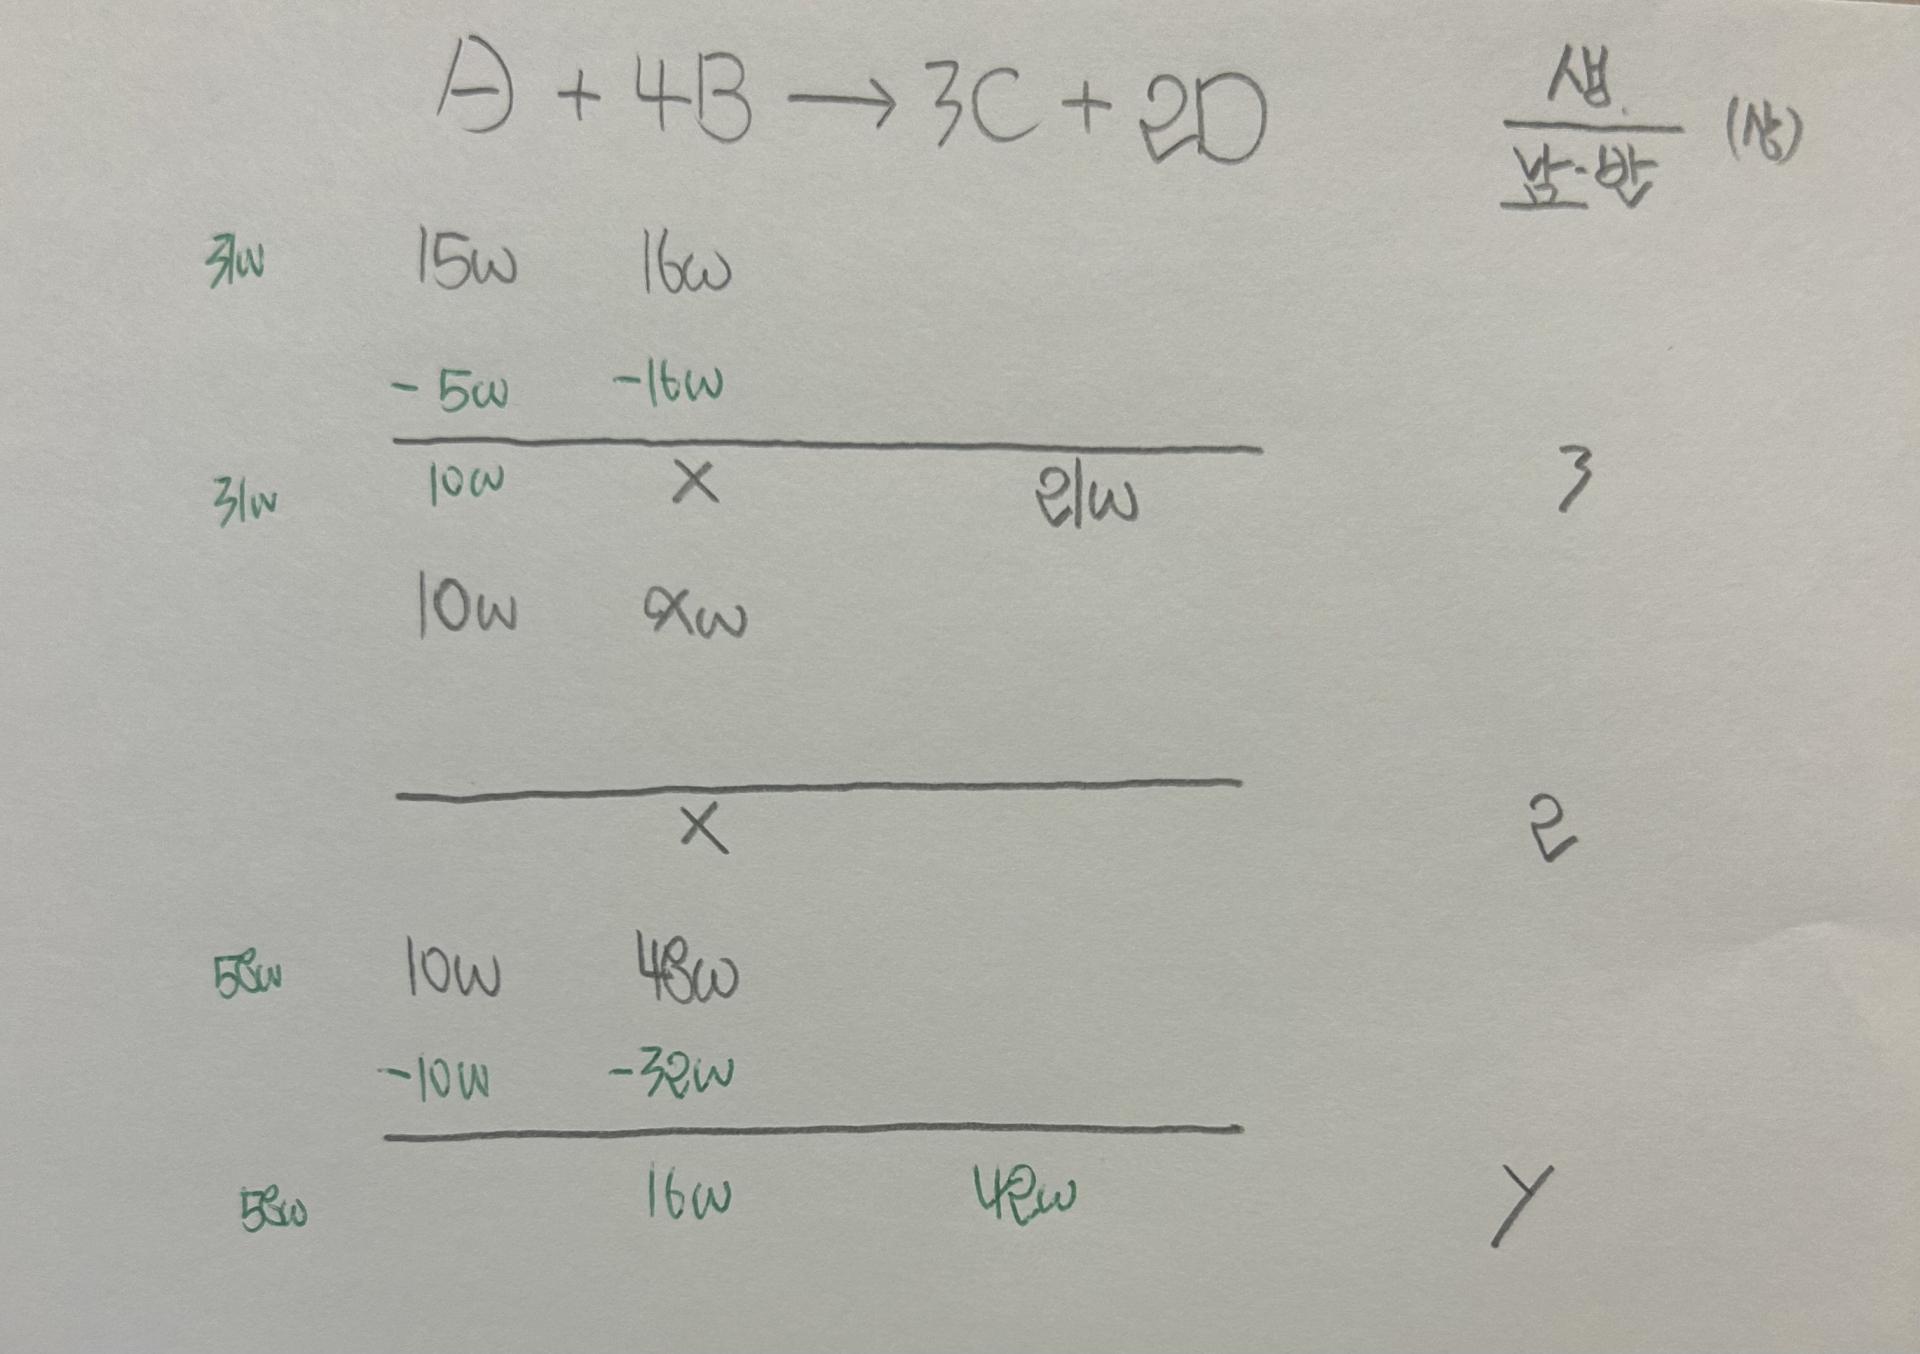 A + 4B → 3C + 2D
생.
남은 반 (상)
31w 15w 16w
-5w -16w
31w 10w X 21w 3
10w xw
X 2
58w 10w 48w
-10w -32w
58w 16w 42w y